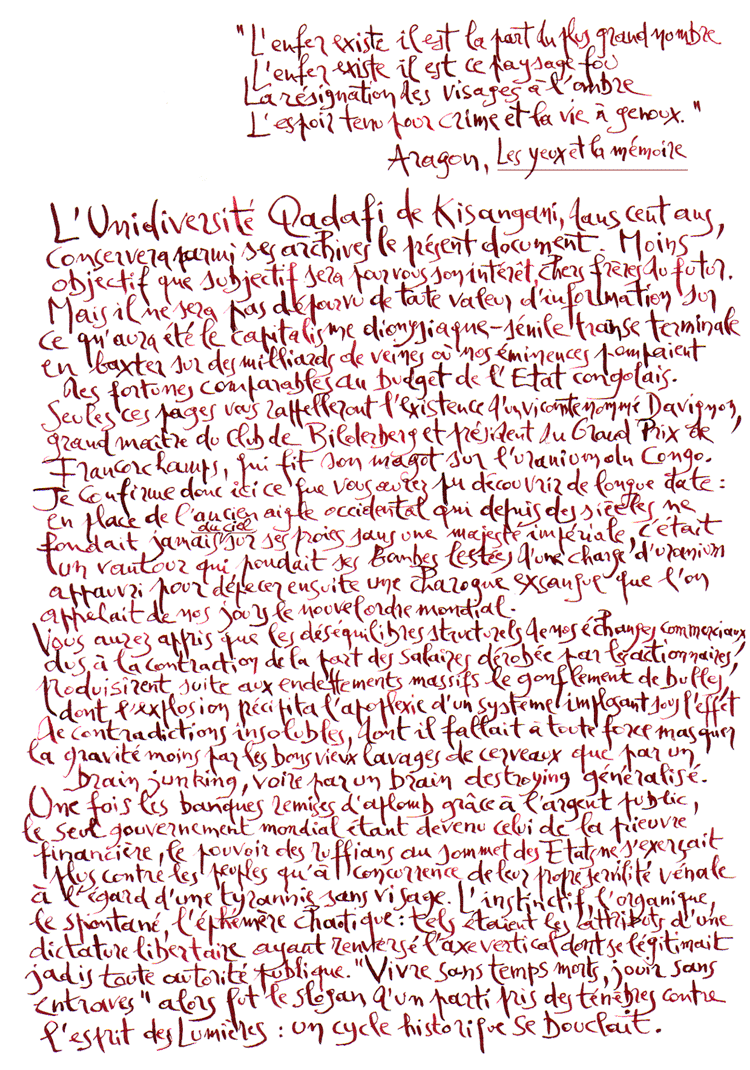 "L'enfer existe il est la part du plus grand nombre
L'enfer existe il est ce paysage fou
La résignation des visages à l'ombre
L'espoir tenu pour crime et la vie à genoux."
Aragon, Les yeux et la mémoire
L'Unidiversité Qadafi de Kisangani, dans cent ans,
conservera parmi ses archives le présent document. Moins
objectif que subjectif sera pour vous son intérêt, chers frères du futur.
Mais il ne sera pas dépourvu de toute valeur d'information sur
ce qu'aura été le capitalisme dionysiaque-sénile, transe terminale
en baxter sur des milliards de veines où nos éminences pompaient
des fortunes comparables au budget de l'Etat congolais.
Seules ces pages vous rappelleront l'existence d'un vicomte nommé Davignon,
grand maître du club de Bilderberg et président du Grand Prix de
Francorchamps, qui fit son magot sur l'uranium du Congo.
Je confirme donc ici ce que vous aurez pu découvrir de longue date :
en place de l'ancien aigle occidental qui depuis des siècles ne
du ciel
fondait jamais sur ses proies sans une majesté impériale, c'était
un vautour qui pondait ses bombes lestées d'une charge d'uranium
appauvri pour dépecer ensuite une charogne exsangue que l'on
appelait de nos jours le nouvel ordre mondial.
Vous aurez appris que les déséquilibres structurels de nos échanges commerciaux,
dus à la contraction de la part des salaires dérobée par les actionnaires,
produisirent suite aux endettements massifs le gonflement de bulles,
dont l'explosion précipita l'apoplexie d'un système implosant sous l'effet
de contradictions insolubles, dont il fallait à toute force masquer
la gravité moins par les bons vieux lavages de cerveaux que par un
brain junking, voire par un brain destroying généralisé.
Une fois les banques remises d'aplomb grâce à l'argent public,
le seul gouvernement mondial étant devenu celui de la pieuvre
financière, le pouvoir des ruffians au sommet des Etats ne s'exerçait
plus contre les peuples qu'à concurrence de leur propre servilité vénale
à l'égard d'une tyrannie sans visage. L'instinctif, l'organique,
le spontané, l'éphémère chaotique : tels étaient les attributs d'une
dictature libertaire ayant renversé l'axe vertical dont se légitimait
jadis toute autorité publique. "Vivre sans temps morts, jouir sans
entraves" alors fut le slogan d'un parti pris des ténèbres contre
l'esprit des Lumières : un cycle historique se bouclait.